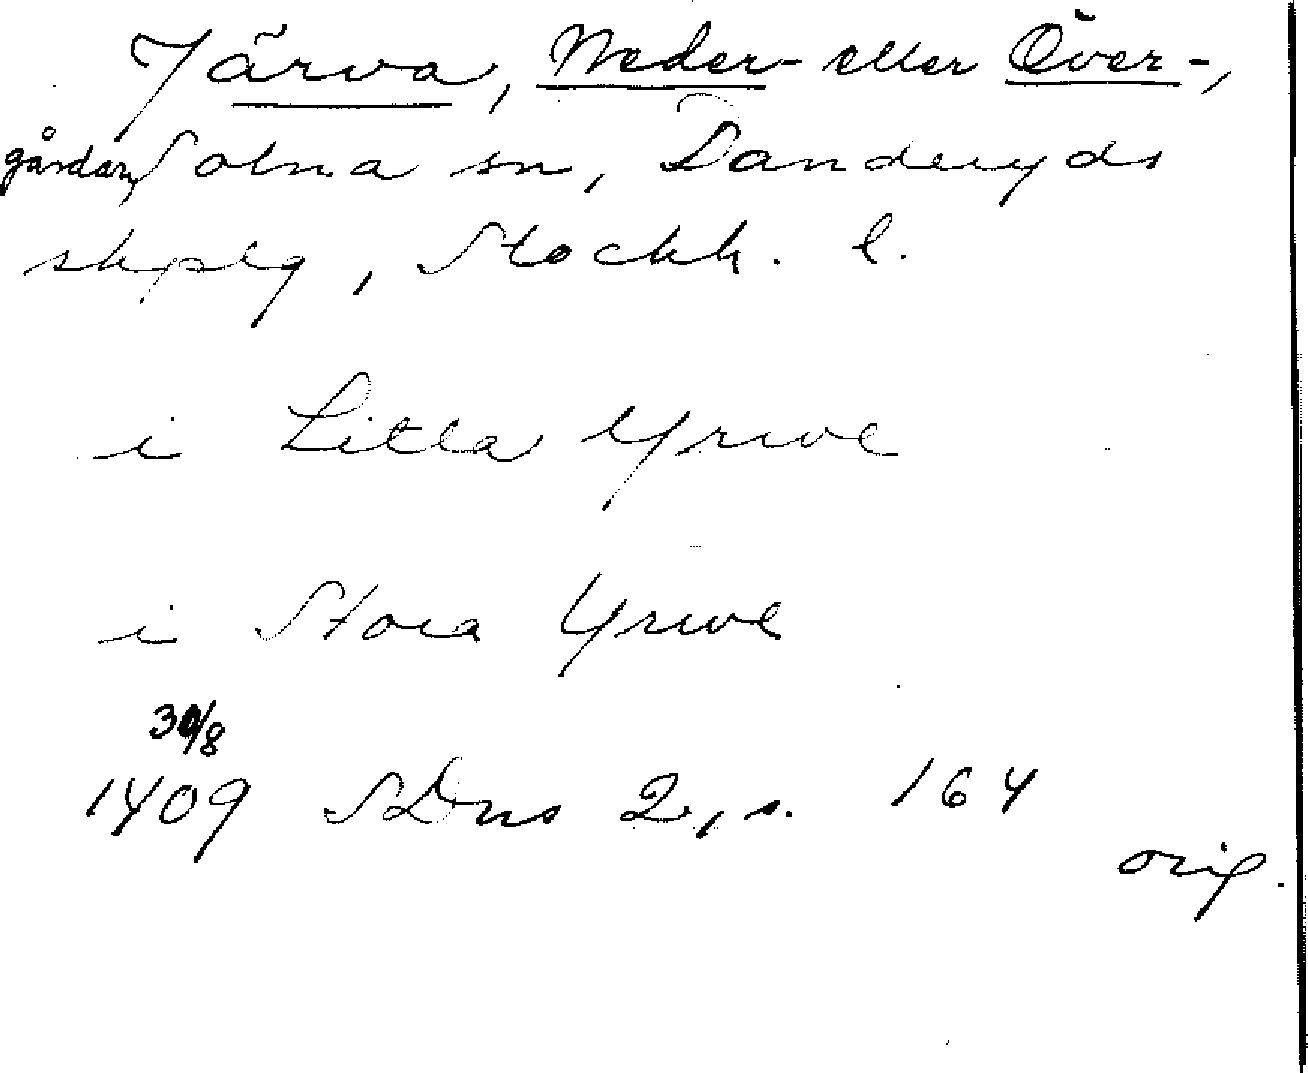 Järva, Neder- eller Över-,
gårdar, Solna sn, Danderyds
skplg, Stockh. l.
i Litla Yrwe
i Stora Yrwe
30/8
1409 SDns 2, s. 164
orig.